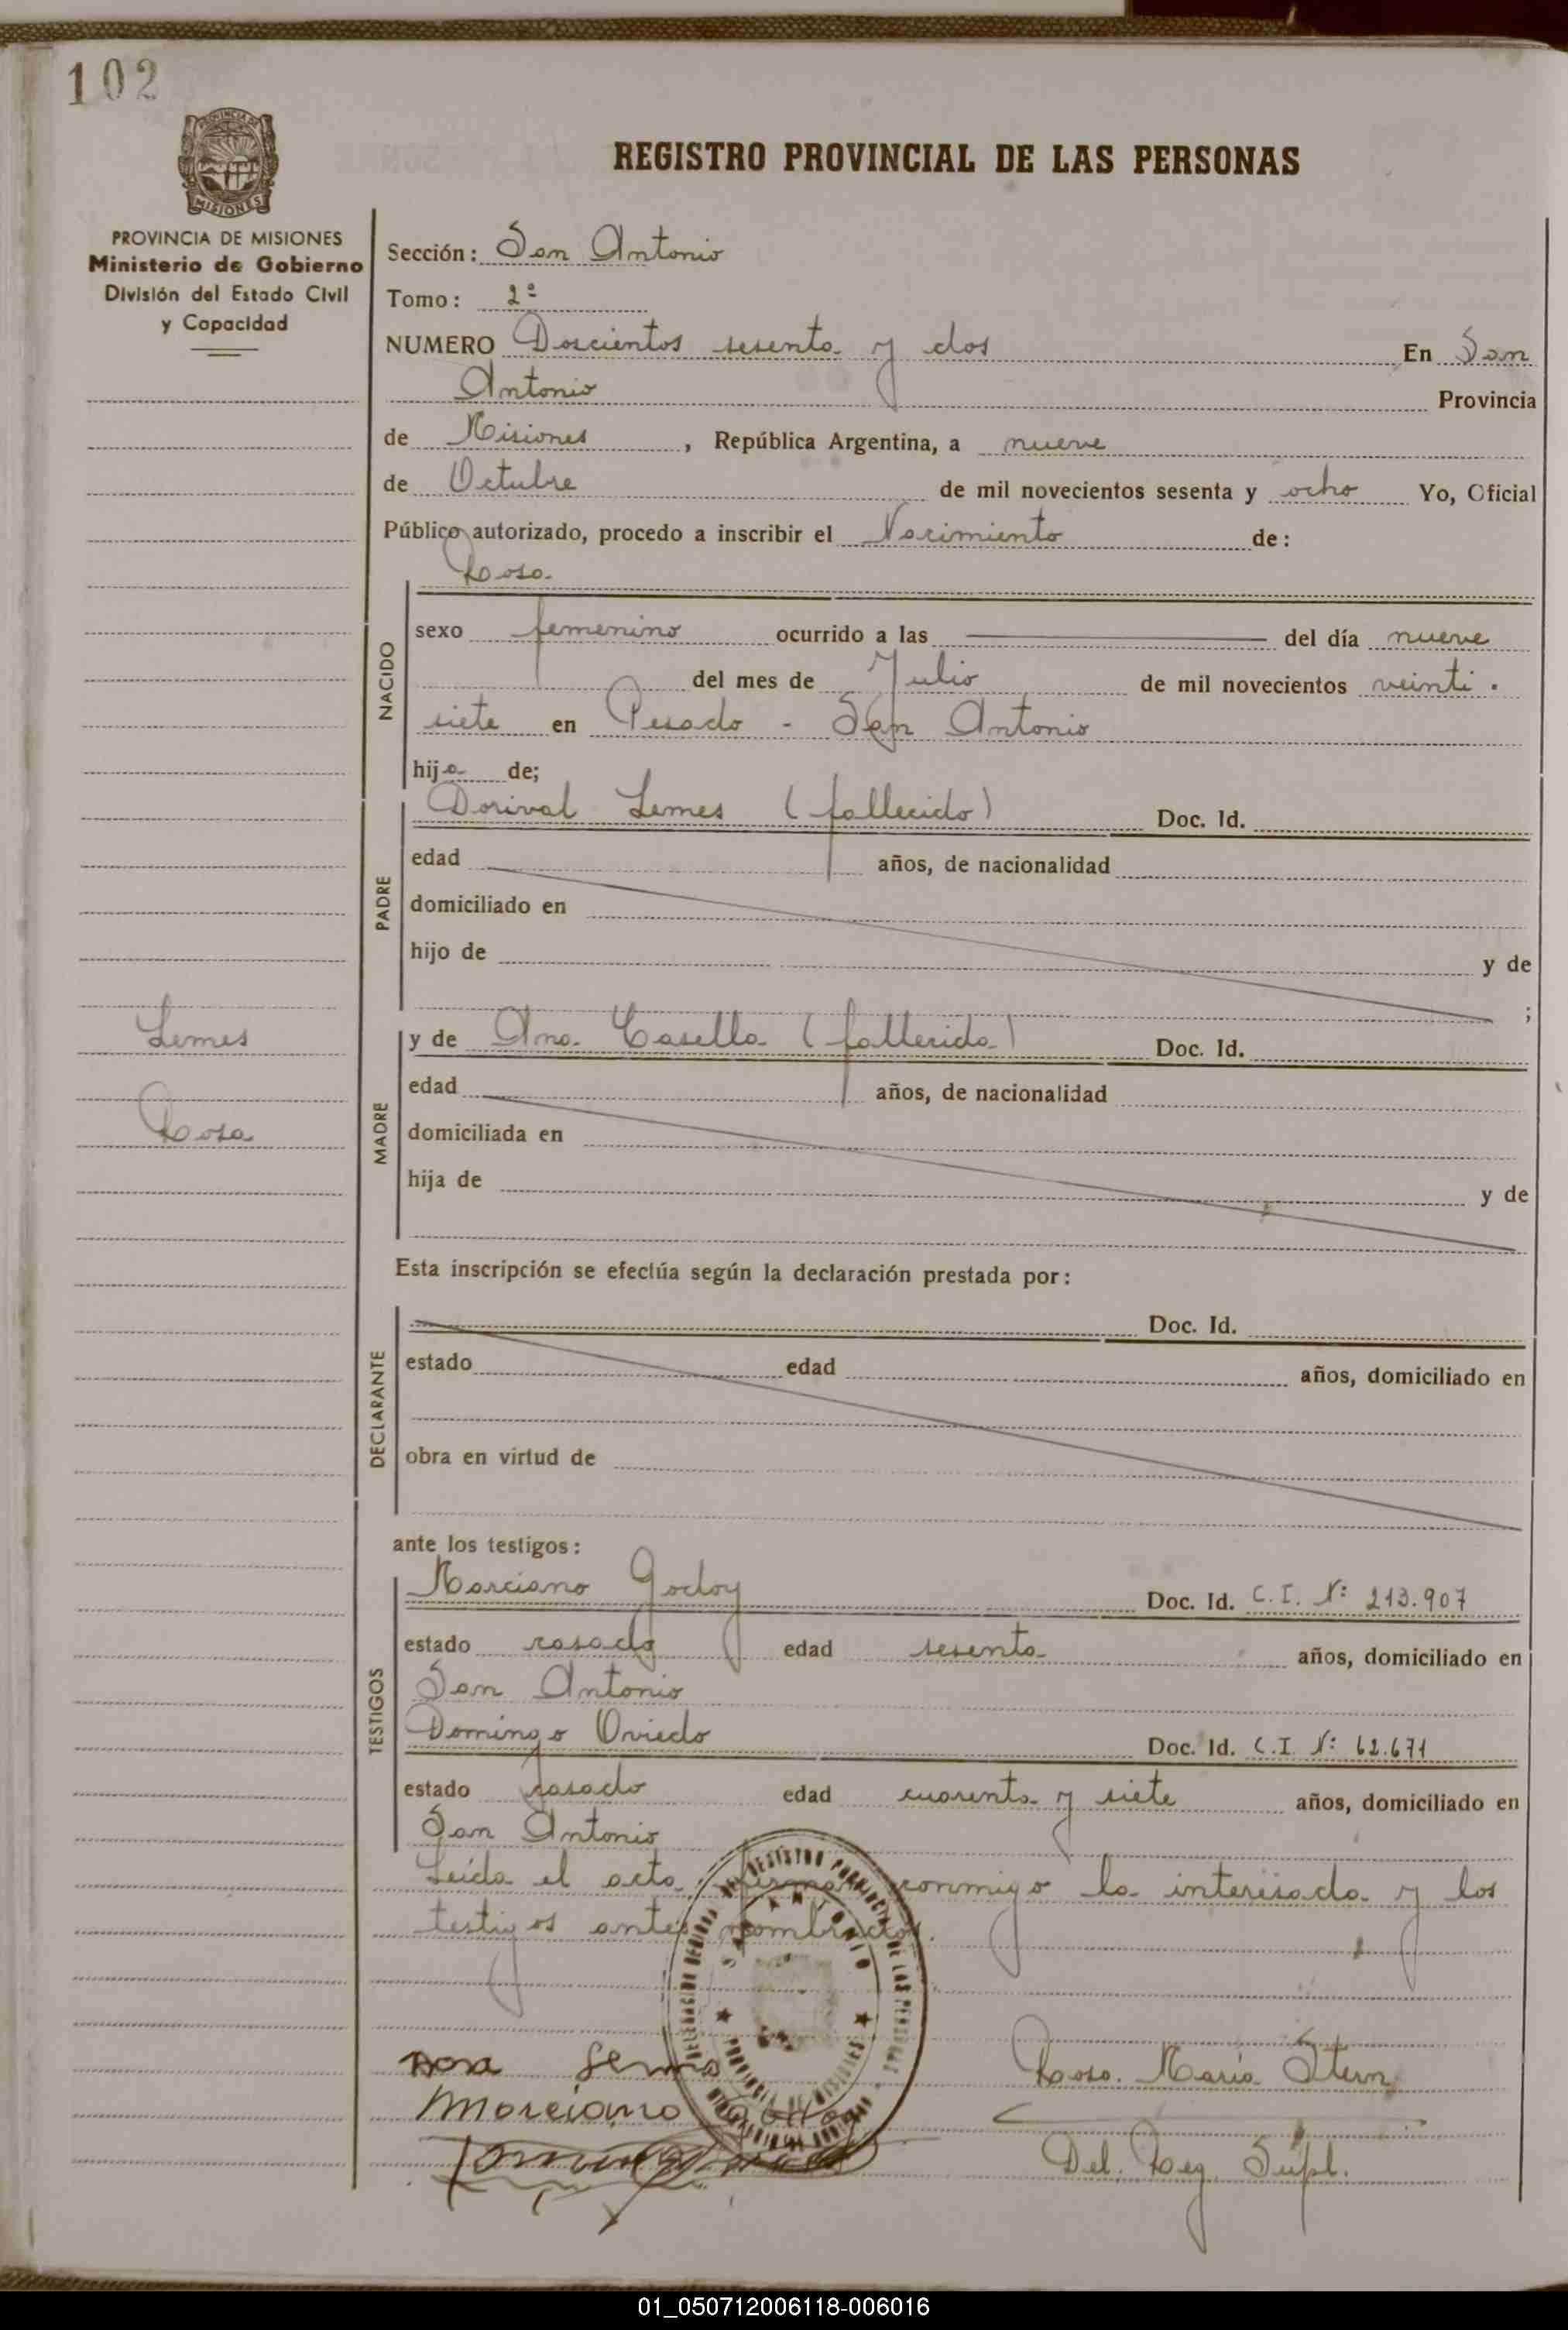 102
PROVINCIA DE
MISIONES
PROVINCIA DE MISIONES
Ministerio de Gobierno
División del Estado Civil
y Capacidad
REGISTRO PROVINCIAL DE LAS PERSONAS
Sección: San Antonio
Tomo: 2º
NUMERO Doscientos sesenta y dos En San
Antonio Provincia
de Misiones, República Argentina, a nueve
de Octubre de mil novecientos sesenta y ocho Yo, Oficial
Público autorizado, procedo a inscribir el Nacimiento de:
Rosa
NACIDO
sexo femenino ocurrido a las del día nueve
del mes de Julio de mil novecientos veinti-
siete en Pesado - San Antonio
hija de;
PADRE
Dorival Lemes (fallecido) Doc. Id.
edad años, de nacionalidad
domiciliado en
hijo de y de
;
Lemes
Rosa
MADRE
y de Ana Casella (fallecida) Doc. Id.
edad años, de nacionalidad
domiciliada en
hija de y de
Esta inscripción se efectúa según la declaración prestada por:
DECLARANTE
Doc. Id.
estado edad años, domiciliado en
obra en virtud de
ante los testigos:
TESTIGOS
Marciano Godoy Doc. Id. C.I. Nº 213.907
estado casado edad sesenta años, domiciliado en
San Antonio
Domingo Oviedo Doc. Id. C.I. Nº 62.671
estado casado edad cuarenta y siete años, domiciliado en
San Antonio
Leída el acta, firman conmigo la interesada y los
testigos antes nombrados.
REGISTRO PROVINCIAL DE LAS PERSONAS
SAN ANTONIO
PROVINCIA DE MISIONES
Rosa Lemes
Rosa María Stern
Marciano Godoy
Del. Reg. Supl.
01_050712006118-006016